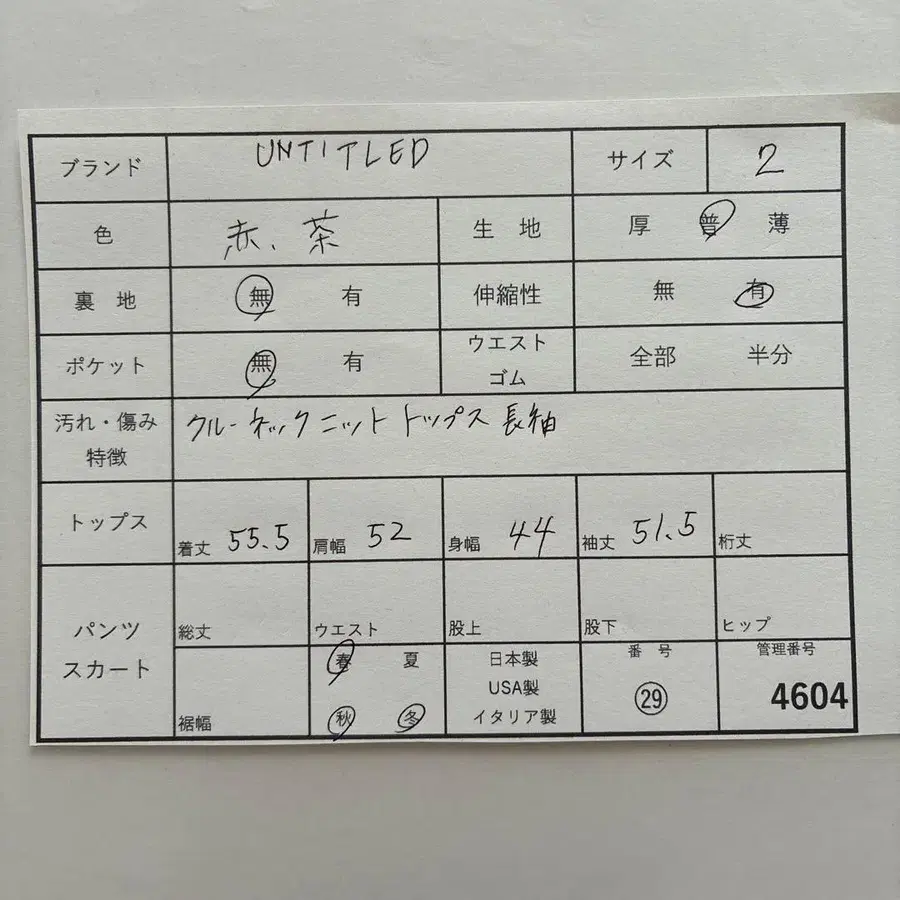 ブランド UNTITLED サイズ 2
色 赤、茶 生地 厚 普 薄
裏地 無 有 伸縮性 無 有
ポケット 無 有 ウエスト 全部 半分
ゴム
汚れ・傷み クルーネックニットトップス長袖
特徴
トップス 着丈 55.5 肩幅 52 身幅 44 袖丈 51.5 桁丈
パンツ 総丈 ウエスト 股上 股下 ヒップ
スカート 裾幅 春 夏 日本製 番号 管理番号
USA製 29 4604
秋 冬 イタリア製